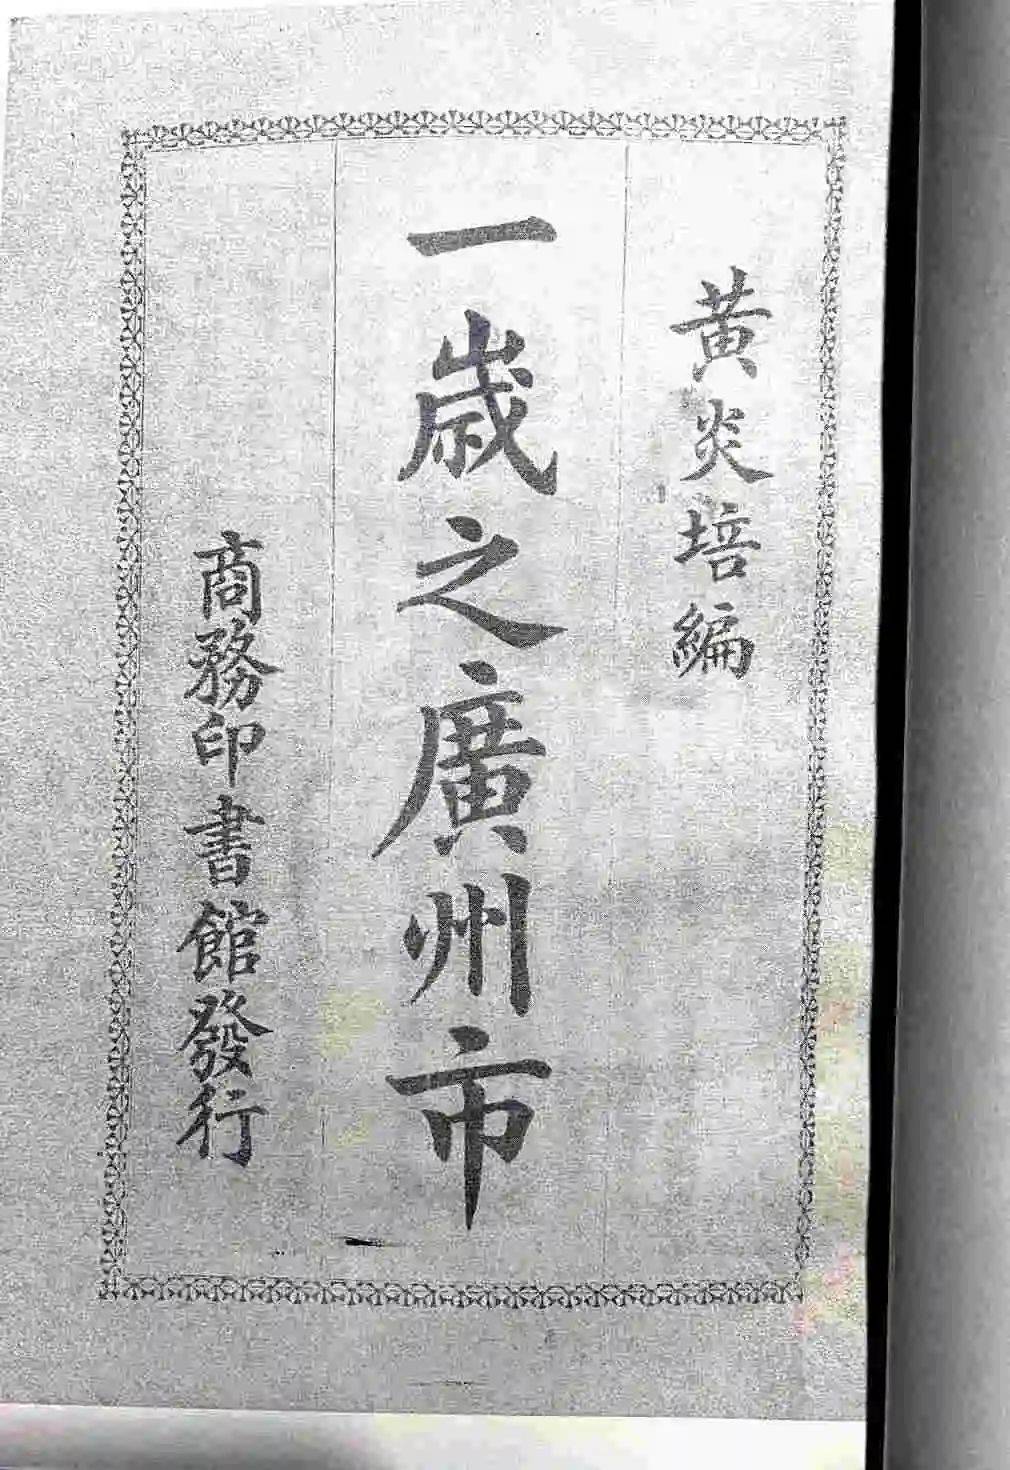 黃炎培編
一歲之廣州市
商務印書館發行